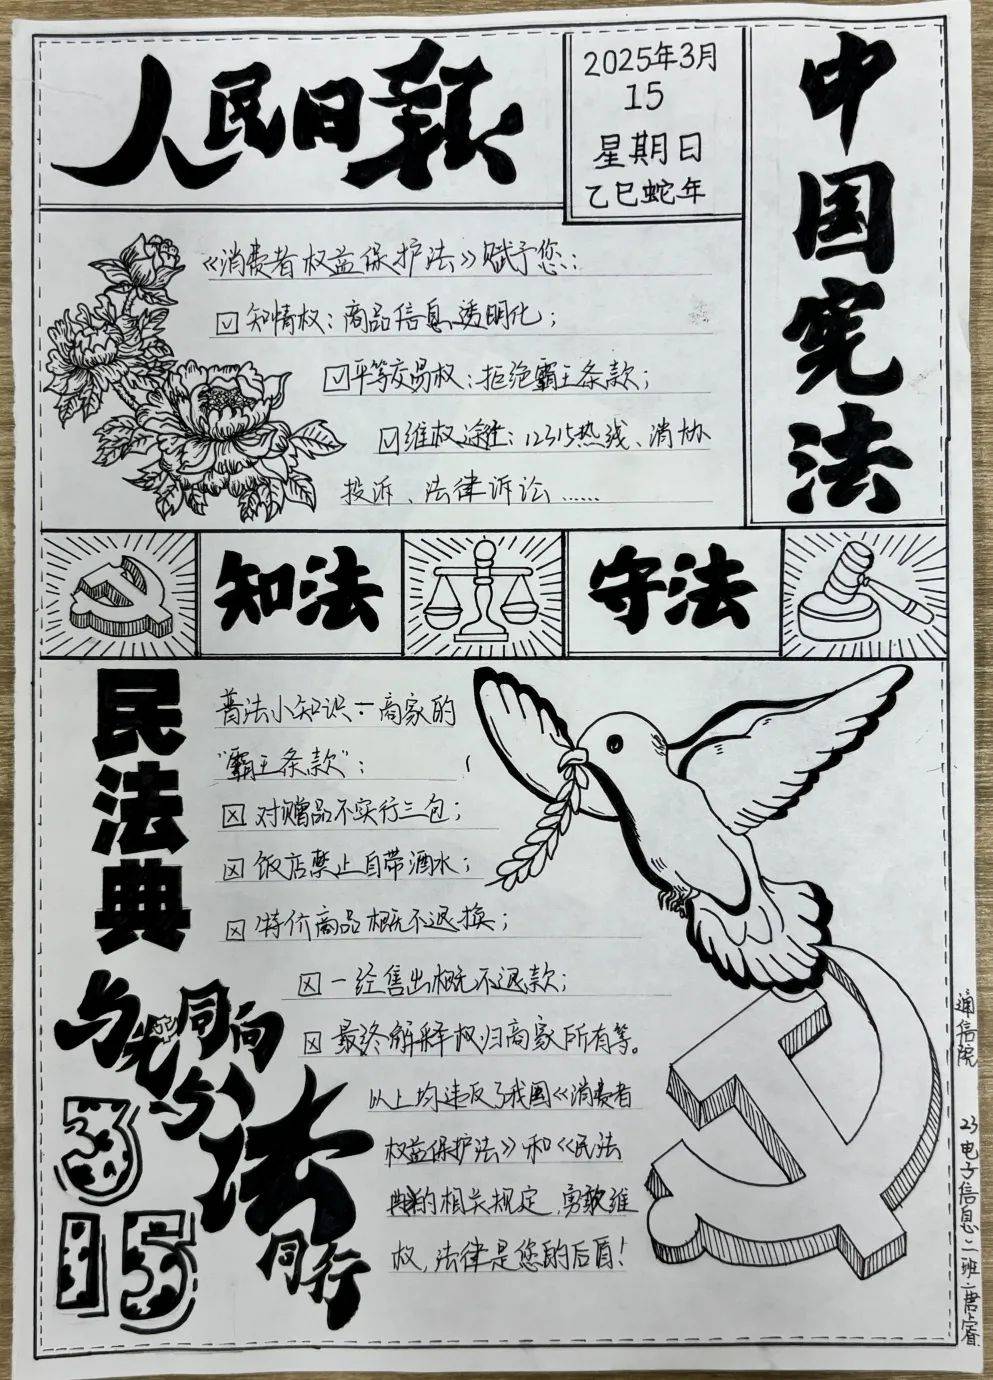 人民日报
2025年3月
15
星期日
乙巳蛇年
中国宪法
《消费者权益保护法》赋予您：
☑知情权：商品信息透明化；
☑平等交易权：拒绝霸王条款；
☑维权途径：12315热线、消协
投诉、法律诉讼……
知法
守法
民法典
普法小知识：商家的
"霸王条款"：
☒对赠品不实行三包；
☒饭店禁止自带酒水；
☒特价商品概不退换；
☒一经售出概不退款；
☒最终解释权归商家所有等。
以上均违反了我国《消费者
权益保护法》和《民法
典》的相关规定，勇敢维
权，法律是您的后盾！
与光同向
与法
同行
3
15
通信院 23电子信息二班